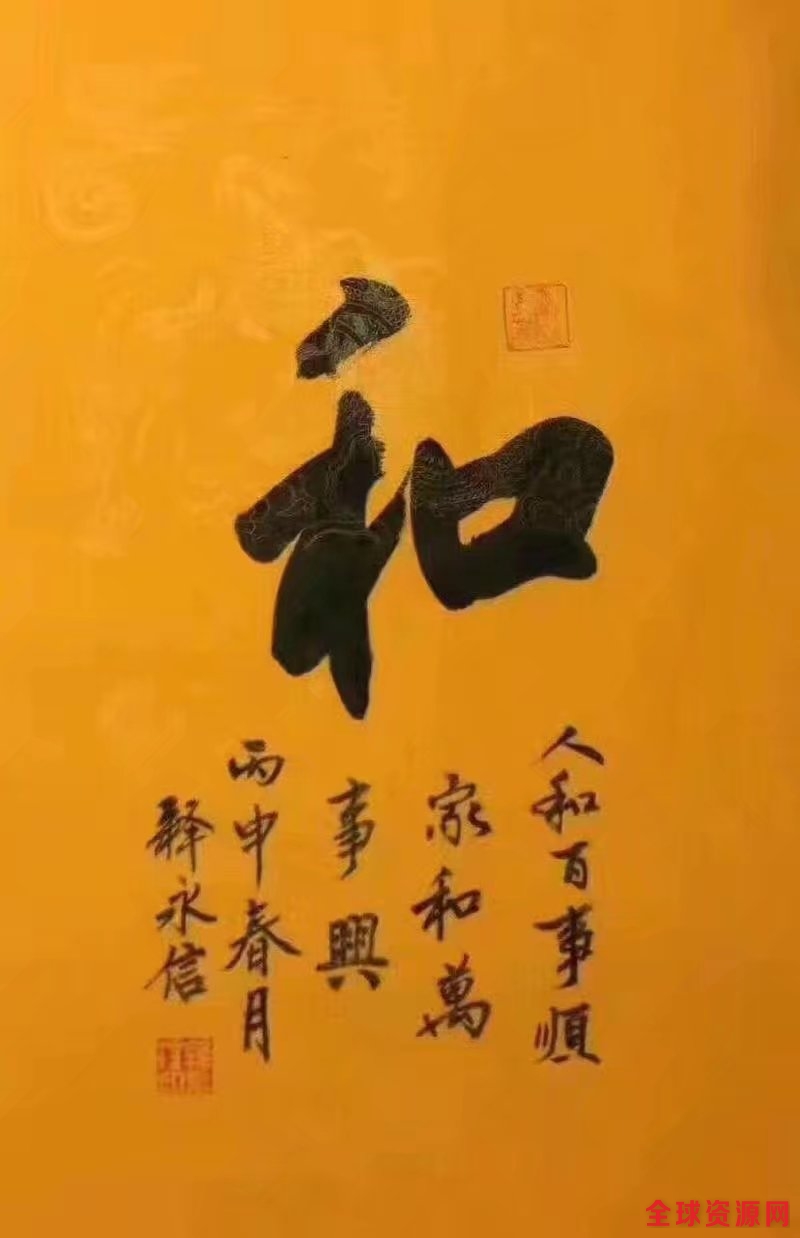 和
人和百事順
家和萬
事興
丙申春月
釋永信
全球资源网